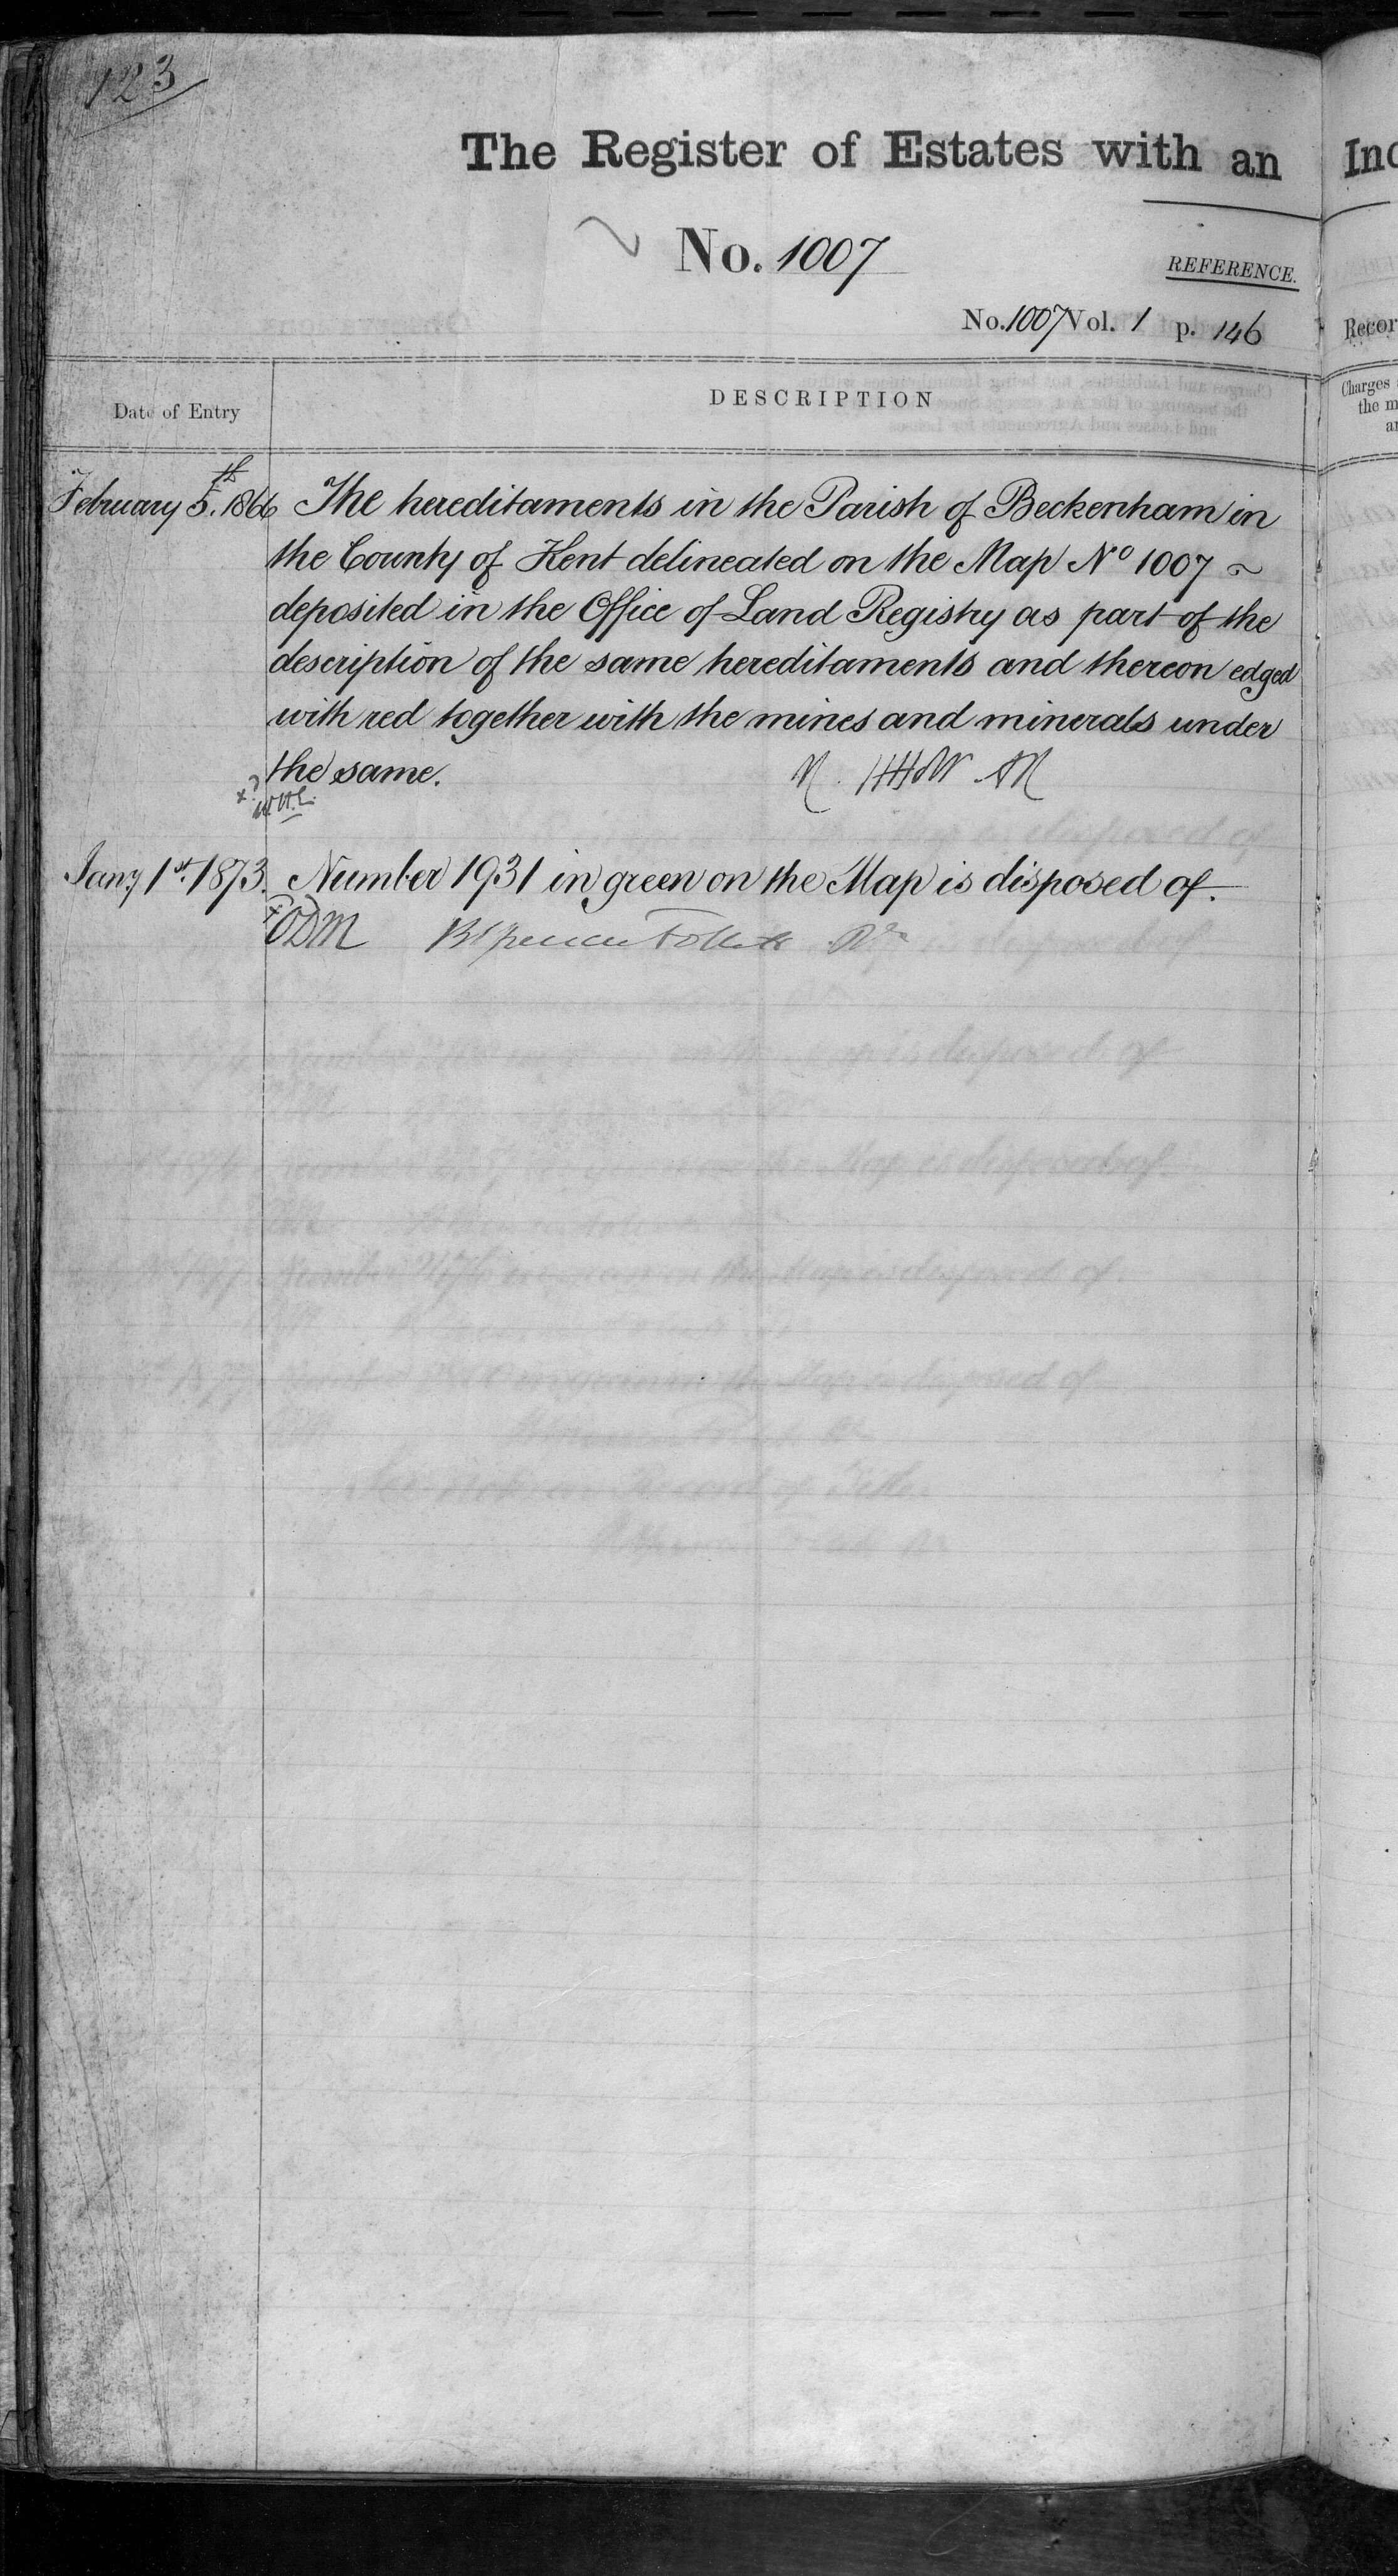 123
The Register of Estates with an Ind
No. 1007
REFERENCE.
No. 1007 Vol. 1 p. 146
Recor
Date of Entry
DESCRIPTION
Charges
the m
February 5th. 1866 The hereditaments in the Parish of Beckenham in
the County of Kent delineated on the Map No 1007 ~
deposited in the Office of Land Registry as part of the
description of the same hereditaments and thereon edged
with red together with the mines and minerals under
the same.
Jany 1st. 1873. Number 1931 in green on the Map is disposed of.
ODM